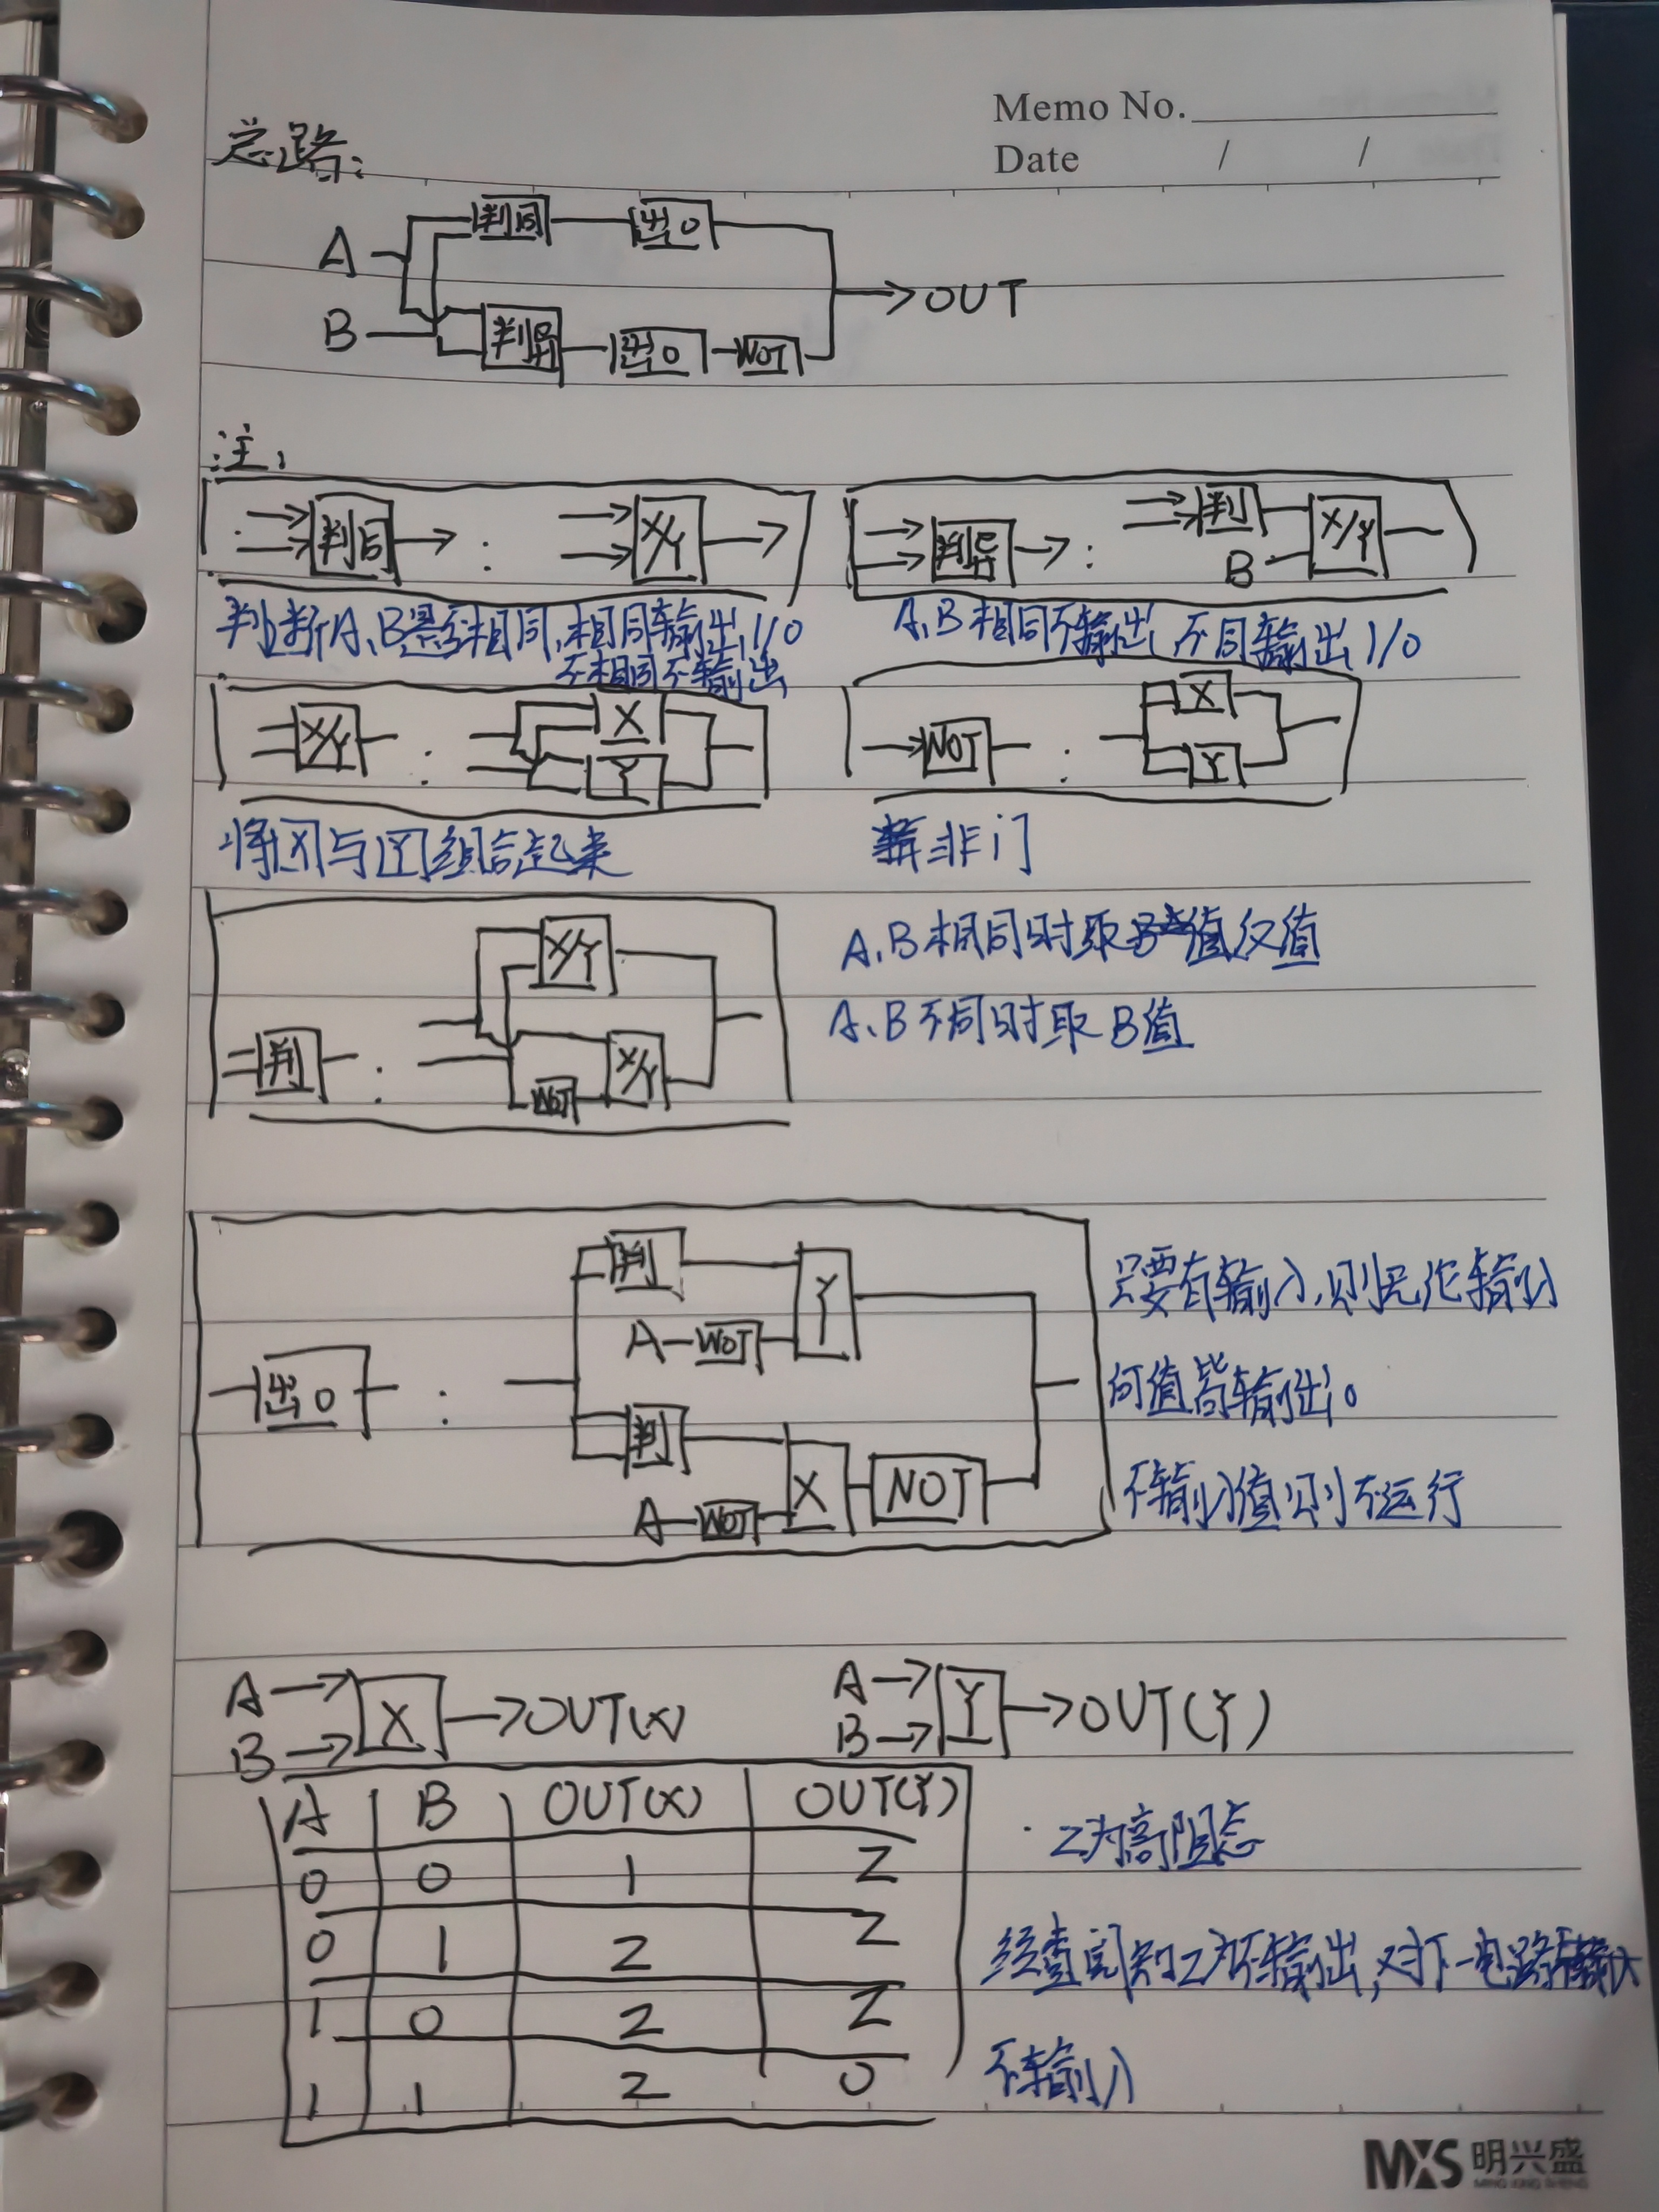 Memo No.
Date / /
总路:
A 判同 出0
OUT
B 判异 出0 NOT
注:
判同 : X/Y
判异 : 判 B X/Y
判断A、B是否相同,相同输出1/0
不相同不输出
A、B相同不输出,不同输出1/0
X/Y : X Y
NOT : X Y
将X与Y组合起来
非门
判 : X/Y NOT X/Y
A、B相同时取 值反值
A、B不同时取B值
出0 : 判 A NOT Y
判 A NOT X NOT
只要有输入,则无论输入
何值皆输出0
不输入值则不运行
A B X OUT(X)
A B Y OUT(Y)
A B OUT(X) OUT(Y)
0 0 1 Z
0 1 Z Z
1 0 Z Z
1 1 Z 0
·Z为高阻态
经查阅知Z为不输出,对下一电路
不输入
MXS 明兴盛
MING XING SHENG